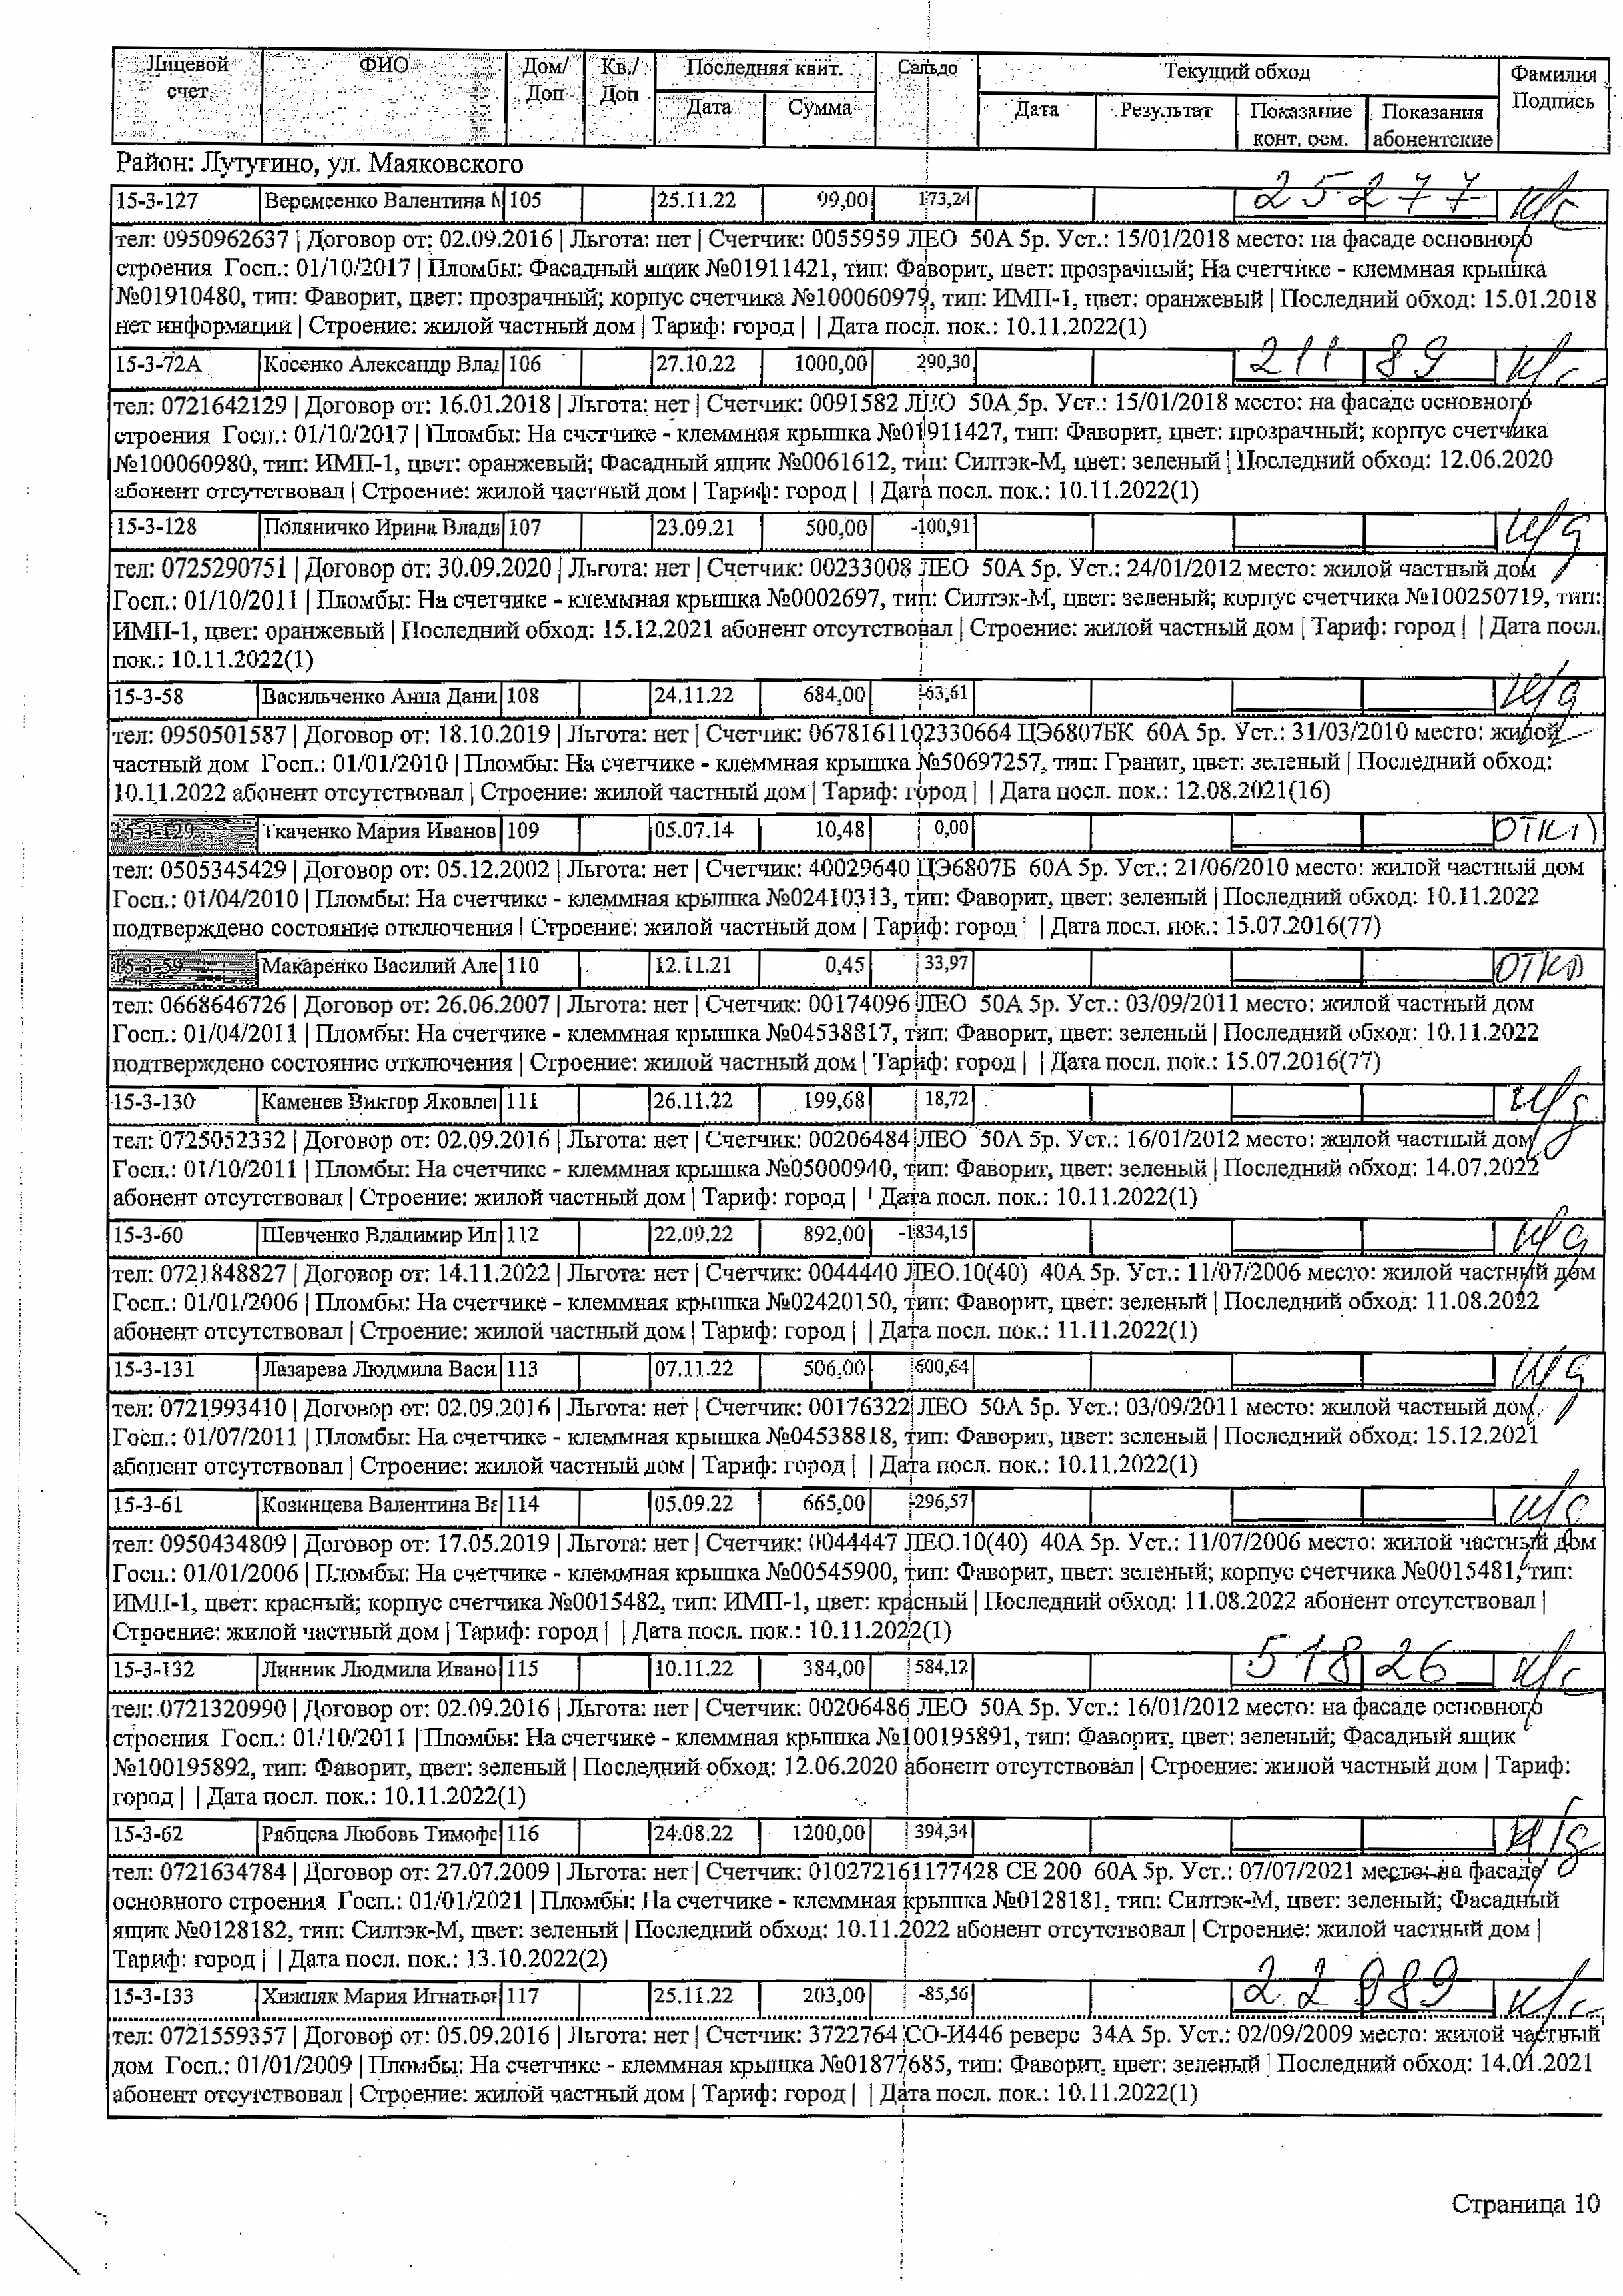 Лицевой счет. ФИО Дом/ Доп Кв./ Доп Последняя квит. Сальдо Текущий обход Фамилия Подпись
Дата Сумма Дата Результат Показание конт. осм. Показания абонентские
Район: Лутугино, ул. Маяковского
15-3-127 Веремеенко Валентина М 105 25.11.22 99,00 173,24 25277 н/с
тел: 0950962637 | Договор от: 02.09.2016 | Льгота: нет | Счетчик: 0055959 ЛЕО 50А 5р. Уст.: 15/01/2018 место: на фасаде основного
строения Госп.: 01/10/2017 | Пломбы: Фасадный ящик №01911421, тип: Фаворит, цвет: прозрачный; На счетчике - клеммная крышка
№01910480, тип: Фаворит, цвет: прозрачный; корпус счетчика №100060979, тип: ИМП-1, цвет: оранжевый | Последний обход: 15.01.2018
нет информации | Строение: жилой частный дом | Тариф: город | | Дата посл. пок.: 10.11.2022(1)
15-3-72А Косенко Александр Влад 106 27.10.22 1000,00 290,30 21189 н/с
тел: 0721642129 | Договор от: 16.01.2018 | Льгота: нет | Счетчик: 0091582 ЛЕО 50А 5р. Уст.: 15/01/2018 место: на фасаде основного
строения Госп.: 01/10/2017 | Пломбы: На счетчике - клеммная крышка №01911427, тип: Фаворит, цвет: прозрачный; корпус счетчика
№100060980, тип: ИМП-1, цвет: оранжевый; Фасадный ящик №0061612, тип: Силтэк-М, цвет: зеленый | Последний обход: 12.06.2020
абонент отсутствовал | Строение: жилой частный дом | Тариф: город | | Дата посл. пок.: 10.11.2022(1)
15-3-128 Поляничко Ирина Влади 107 23.09.21 500,00 -100,91 н/д
тел: 0725290751 | Договор от: 30.09.2020 | Льгота: нет | Счетчик: 00233008 ЛЕО 50А 5р. Уст.: 24/01/2012 место: жилой частный дом
Госп.: 01/10/2011 | Пломбы: На счетчике - клеммная крышка №0002697, тип: Силтэк-М, цвет: зеленый; корпус счетчика №100250719, тип:
ИМП-1, цвет: оранжевый | Последний обход: 15.12.2021 абонент отсутствовал | Строение: жилой частный дом | Тариф: город | | Дата посл.
пок.: 10.11.2022(1)
15-3-58 Васильченко Анна Дани 108 24.11.22 684,00 -63,61 н/д
тел: 0950501587 | Договор от: 18.10.2019 | Льгота: нет | Счетчик: 0678161102330664 ЦЭ6807БК 60А 5р. Уст.: 31/03/2010 место: жилой
частный дом Госп.: 01/01/2010 | Пломбы: На счетчике - клеммная крышка №50697257, тип: Гранит, цвет: зеленый | Последний обход:
10.11.2022 абонент отсутствовал | Строение: жилой частный дом | Тариф: город | | Дата посл. пок.: 12.08.2021(16)
15-3-129 Ткаченко Мария Иванов 109 05.07.14 10,48 0,00 откл
тел: 0505345429 | Договор от: 05.12.2002 | Льгота: нет | Счетчик: 40029640 ЦЭ6807Б 60А 5р. Уст.: 21/06/2010 место: жилой частный дом
Госп.: 01/04/2010 | Пломбы: На счетчике - клеммная крышка №02410313, тип: Фаворит, цвет: зеленый | Последний обход: 10.11.2022
подтверждено состояние отключения | Строение: жилой частный дом | Тариф: город | | Дата посл. пок.: 15.07.2016(77)
15-3-59 Макаренко Василий Але 110 12.11.21 0,45 33,97 откл
тел: 0668646726 | Договор от: 26.06.2007 | Льгота: нет | Счетчик: 00174096 ЛЕО 50А 5р. Уст.: 03/09/2011 место: жилой частный дом
Госп.: 01/04/2011 | Пломбы: На счетчике - клеммная крышка №04538817, тип: Фаворит, цвет: зеленый | Последний обход: 10.11.2022
подтверждено состояние отключения | Строение: жилой частный дом | Тариф: город | | Дата посл. пок.: 15.07.2016(77)
15-3-130 Каменев Виктор Яковлев 111 26.11.22 199,68 18,72 н/д
тел: 0725052332 | Договор от: 02.09.2016 | Льгота: нет | Счетчик: 00206484 ЛЕО 50А 5р. Уст.: 16/01/2012 место: жилой частный дом
Госп.: 01/10/2011 | Пломбы: На счетчике - клеммная крышка №05000940, тип: Фаворит, цвет: зеленый | Последний обход: 14.07.2022
абонент отсутствовал | Строение: жилой частный дом | Тариф: город | | Дата посл. пок.: 10.11.2022(1)
15-3-60 Шевченко Владимир Ил 112 22.09.22 892,00 -1834,15 н/д
тел: 0721848827 | Договор от: 14.11.2022 | Льгота: нет | Счетчик: 0044440 ЛЕО.10(40) 40А 5р. Уст.: 11/07/2006 место: жилой частный дом
Госп.: 01/01/2006 | Пломбы: На счетчике - клеммная крышка №02420150, тип: Фаворит, цвет: зеленый | Последний обход: 11.08.2022
абонент отсутствовал | Строение: жилой частный дом | Тариф: город | | Дата посл. пок.: 11.11.2022(1)
15-3-131 Лазарева Людмила Васи 113 07.11.22 506,00 600,64 н/д
тел: 0721993410 | Договор от: 02.09.2016 | Льгота: нет | Счетчик: 00176322 ЛЕО 50А 5р. Уст.: 03/09/2011 место: жилой частный дом
Госп.: 01/07/2011 | Пломбы: На счетчике - клеммная крышка №04538818, тип: Фаворит, цвет: зеленый | Последний обход: 15.12.2021
абонент отсутствовал | Строение: жилой частный дом | Тариф: город | | Дата посл. пок.: 10.11.2022(1)
15-3-61 Козинцева Валентина Ва 114 05.09.22 665,00 -296,57 н/д
тел: 0950434809 | Договор от: 17.05.2019 | Льгота: нет | Счетчик: 0044447 ЛЕО.10(40) 40А 5р. Уст.: 11/07/2006 место: жилой частный дом
Госп.: 01/01/2006 | Пломбы: На счетчике - клеммная крышка №00545900, тип: Фаворит, цвет: зеленый; корпус счетчика №0015481, тип:
ИМП-1, цвет: красный; корпус счетчика №0015482, тип: ИМП-1, цвет: красный | Последний обход: 11.08.2022 абонент отсутствовал |
Строение: жилой частный дом | Тариф: город | | Дата посл. пок.: 10.11.2022(1)
15-3-132 Линник Людмила Ивано 115 10.11.22 384,00 584,12 51826 н/с
тел: 0721320990 | Договор от: 02.09.2016 | Льгота: нет | Счетчик: 00206486 ЛЕО 50А 5р. Уст.: 16/01/2012 место: на фасаде основного
строения Госп.: 01/10/2011 | Пломбы: На счетчике - клеммная крышка №100195891, тип: Фаворит, цвет: зеленый; Фасадный ящик
№100195892, тип: Фаворит, цвет: зеленый | Последний обход: 12.06.2020 абонент отсутствовал | Строение: жилой частный дом | Тариф:
город | | Дата посл. пок.: 10.11.2022(1)
15-3-62 Рябцева Любовь Тимофе 116 24.08.22 1200,00 394,34 н/д
тел: 0721634784 | Договор от: 27.07.2009 | Льгота: нет | Счетчик: 010272161177428 СЕ 200 60А 5р. Уст.: 07/07/2021 место: на фасаде
основного строения Госп.: 01/01/2021 | Пломбы: На счетчике - клеммная крышка №0128181, тип: Силтэк-М, цвет: зеленый; Фасадный
ящик №0128182, тип: Силтэк-М, цвет: зеленый | Последний обход: 10.11.2022 абонент отсутствовал | Строение: жилой частный дом |
Тариф: город | | Дата посл. пок.: 13.10.2022(2)
15-3-133 Хижняк Мария Игнатьев 117 25.11.22 203,00 -85,56 22989 н/с
тел: 0721559357 | Договор от: 05.09.2016 | Льгота: нет | Счетчик: 3722764 СО-И446 реверс 34А 5р. Уст.: 02/09/2009 место: жилой частный
дом Госп.: 01/01/2009 | Пломбы: На счетчике - клеммная крышка №01877685, тип: Фаворит, цвет: зеленый | Последний обход: 14.01.2021
абонент отсутствовал | Строение: жилой частный дом | Тариф: город | | Дата посл. пок.: 10.11.2022(1)
Страница 10